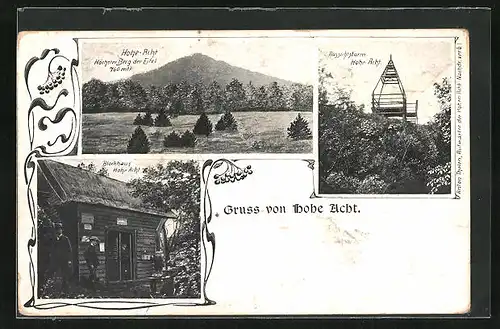 Hohe-Acht
Höchster Berg der Eifel
760 mtr.
Aussichtsturm
Hohe Acht.
Blockhaus
Hohe Acht
Gruss von Hohe Acht.